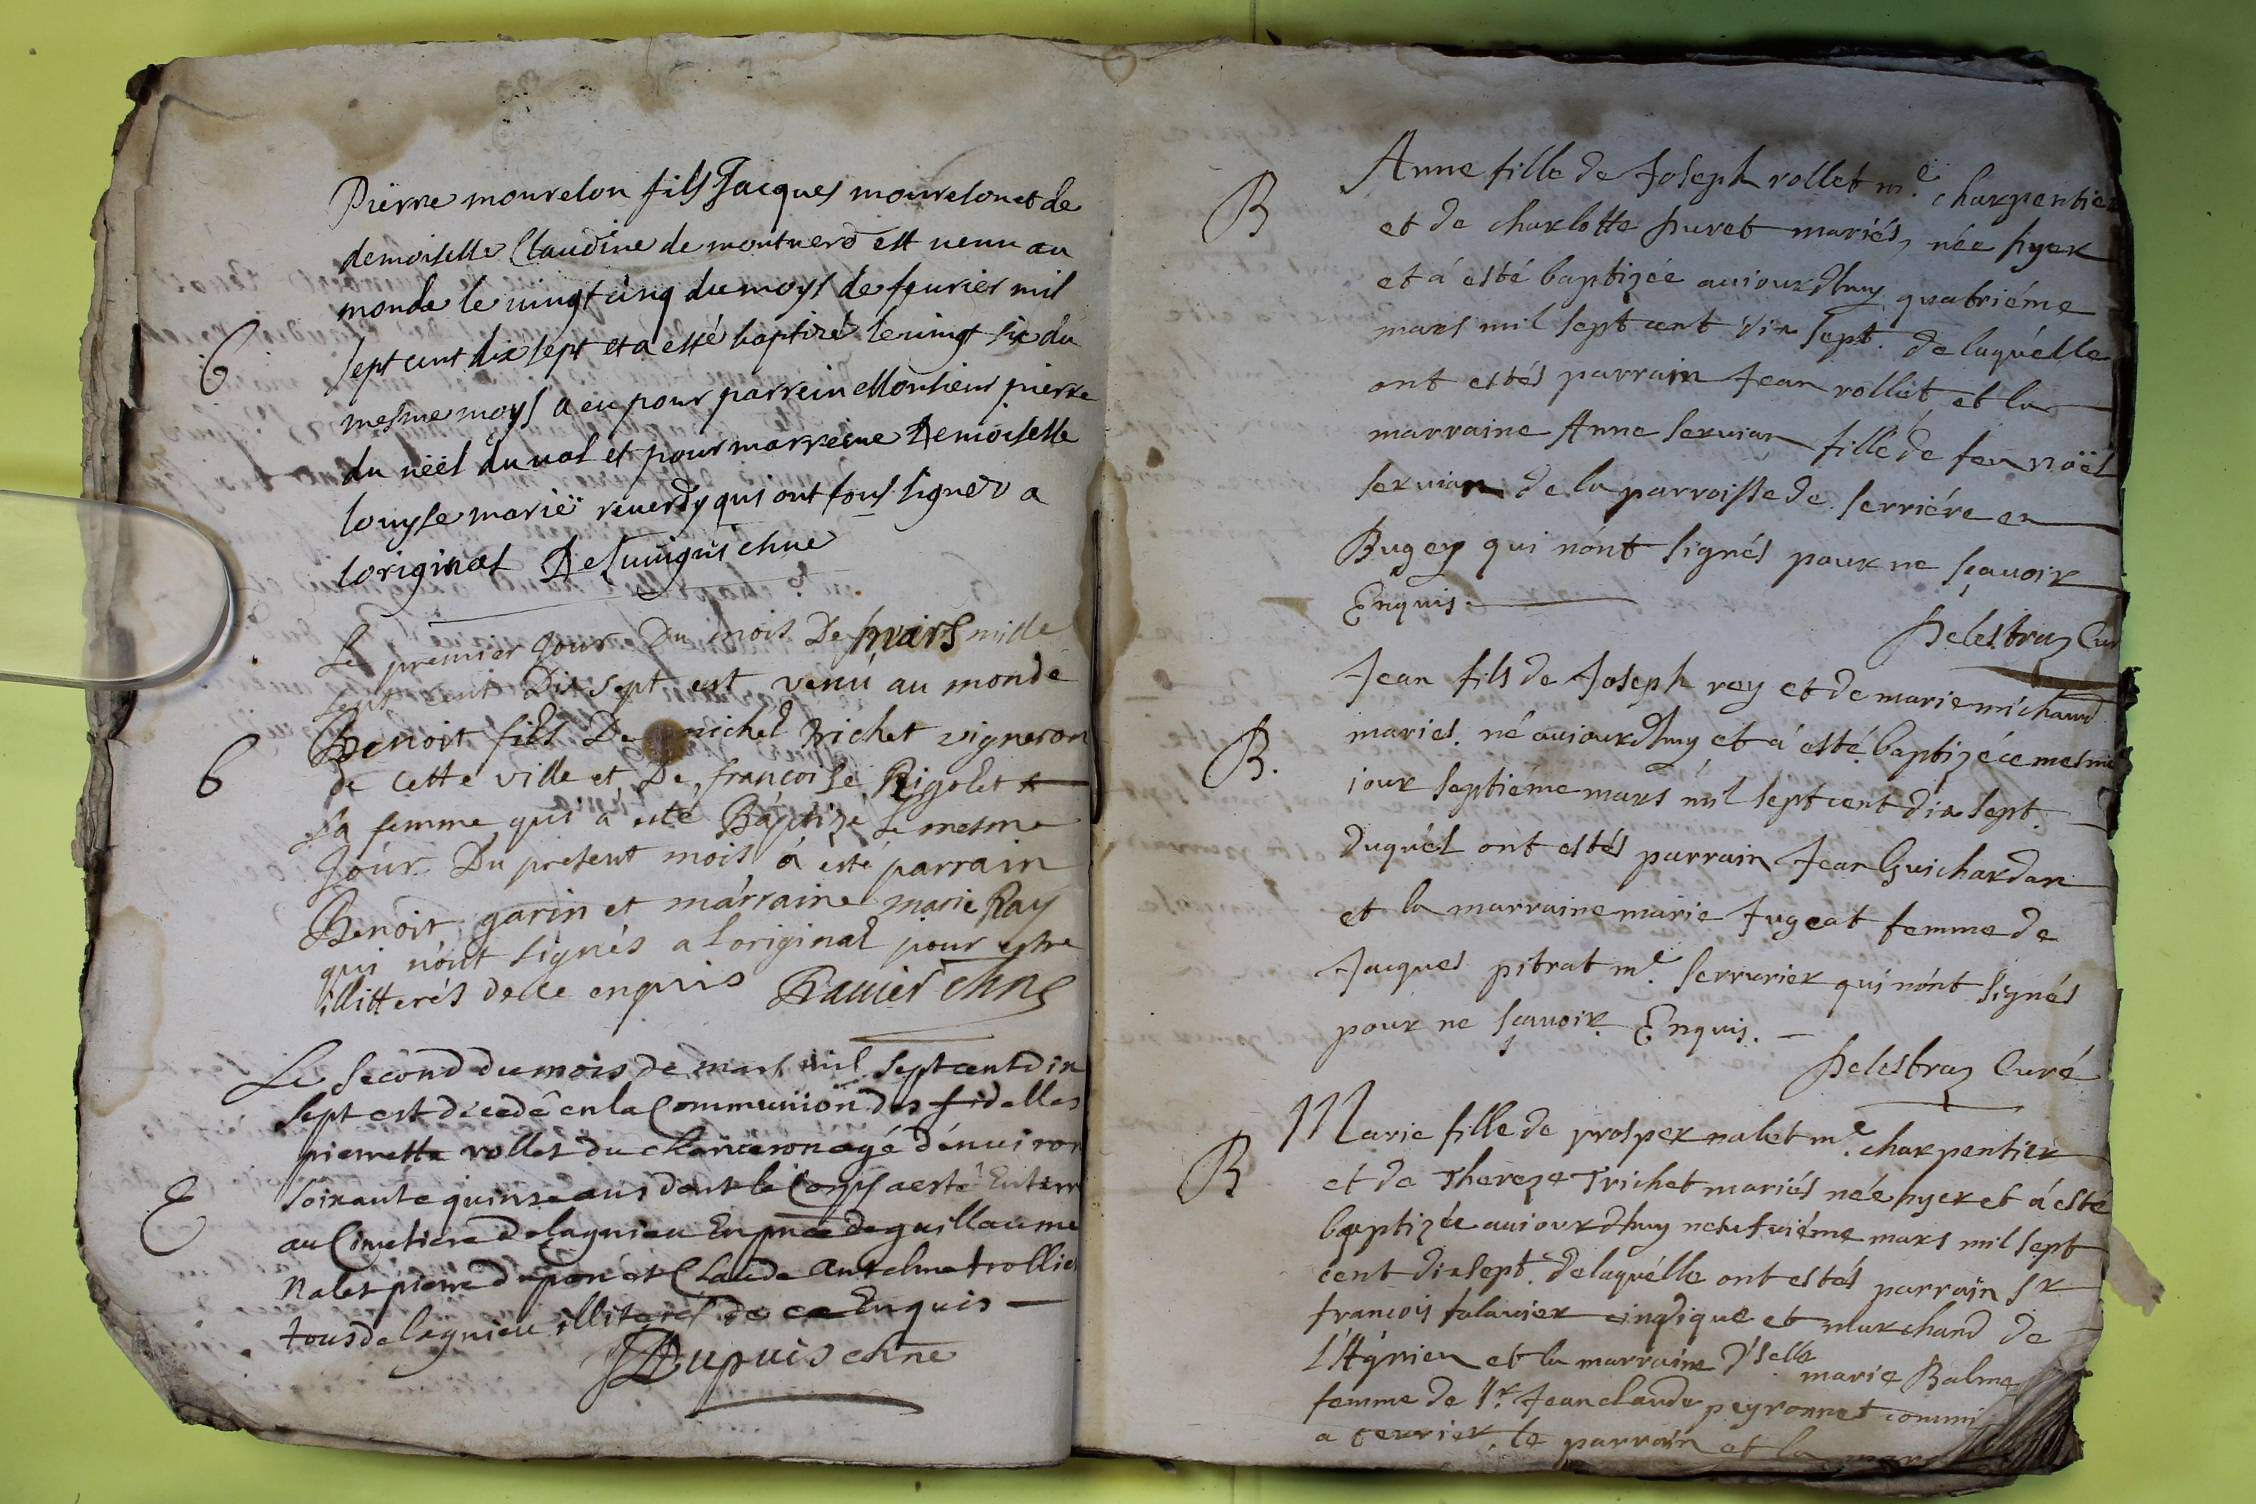 Pierre mourelon fils Jacques mourelon et de
demoiselle Claudine de montuerd est uenu au
monde le uingt cinq du moys de feurier mil
b sept cent dix sept et a esté baptizé le uingt six du
mesme moys a eu pour parrein Monsieur pierre
du néel du ual et pour marreine Demoiselle
louyse marië reuerdy qui ont tous signez a
loriginal chne
Le premier Jour Du mois De mars mille
sept cent Dix sept est venu au monde
Benoit fils De michel trichet vigneron
b de cette ville et De francoise Rigolet
sa femme qui a esté Baptizé le mesme
Jour Du present mois á esté parrain
Benoit garin et marraine marie Ray
qui nónt signés a loriginal pour estre
illitterés de ce enquis Rauier chne
Le second du mois de mars mil sept cent dix
sept est décedé en la Communion des fidelles
pierrette rollet du chanceron agé dénuiron
E soixante quinze ans dont le Corps a esté Enterré
au Cimetiere de lagnieu En pñce de guillaume
Nalet pierre dupon et Claude antelme trollie
tous de lagnieu illiterés de ce Enquis
Dupuis chne
Anne fille de Joseph rollet me. charpentier
B et de charlotte puret mariés, née hyer
et á esté baptizée auiourdhuy quatriéme
mars mil sept cent dix sept. de laquélle
ont estés parrain Jean rollet, et la
marraine Anne seruian fille de feu noël
seruian de la parroisse de serriére en
Bugey qui nónt signés pour ne sçauoir
Enquis.
Delestraz Cur
Jean fils de Joseph rey et de marie michaud
B. mariés. né auiourdhuy et á esté baptizé ce mesme
iour septiéme mars mil sept cent dix sept.
duquél ont estés parrain Jean Guichardan
et la marraine marie Jugeat femme de
Jacques pitrat me. serrurier qui nónt signés
pour ne sçauoir. Enquis.
Delestraz Curé
Marie fille de prosper nalet me. charpentier
B et de Thereze Trichet mariés née hyer et á este
baptizée auiourdhuy neufuiéme mars mil sept
cent dix sept. de laquélle ont estés parrain sr
francois falauier cindique et marchand de
l'Agnieu et la marraine Dselle marie Balme
femme de sr. Jean claude peyronnet commi
a le parrain et la